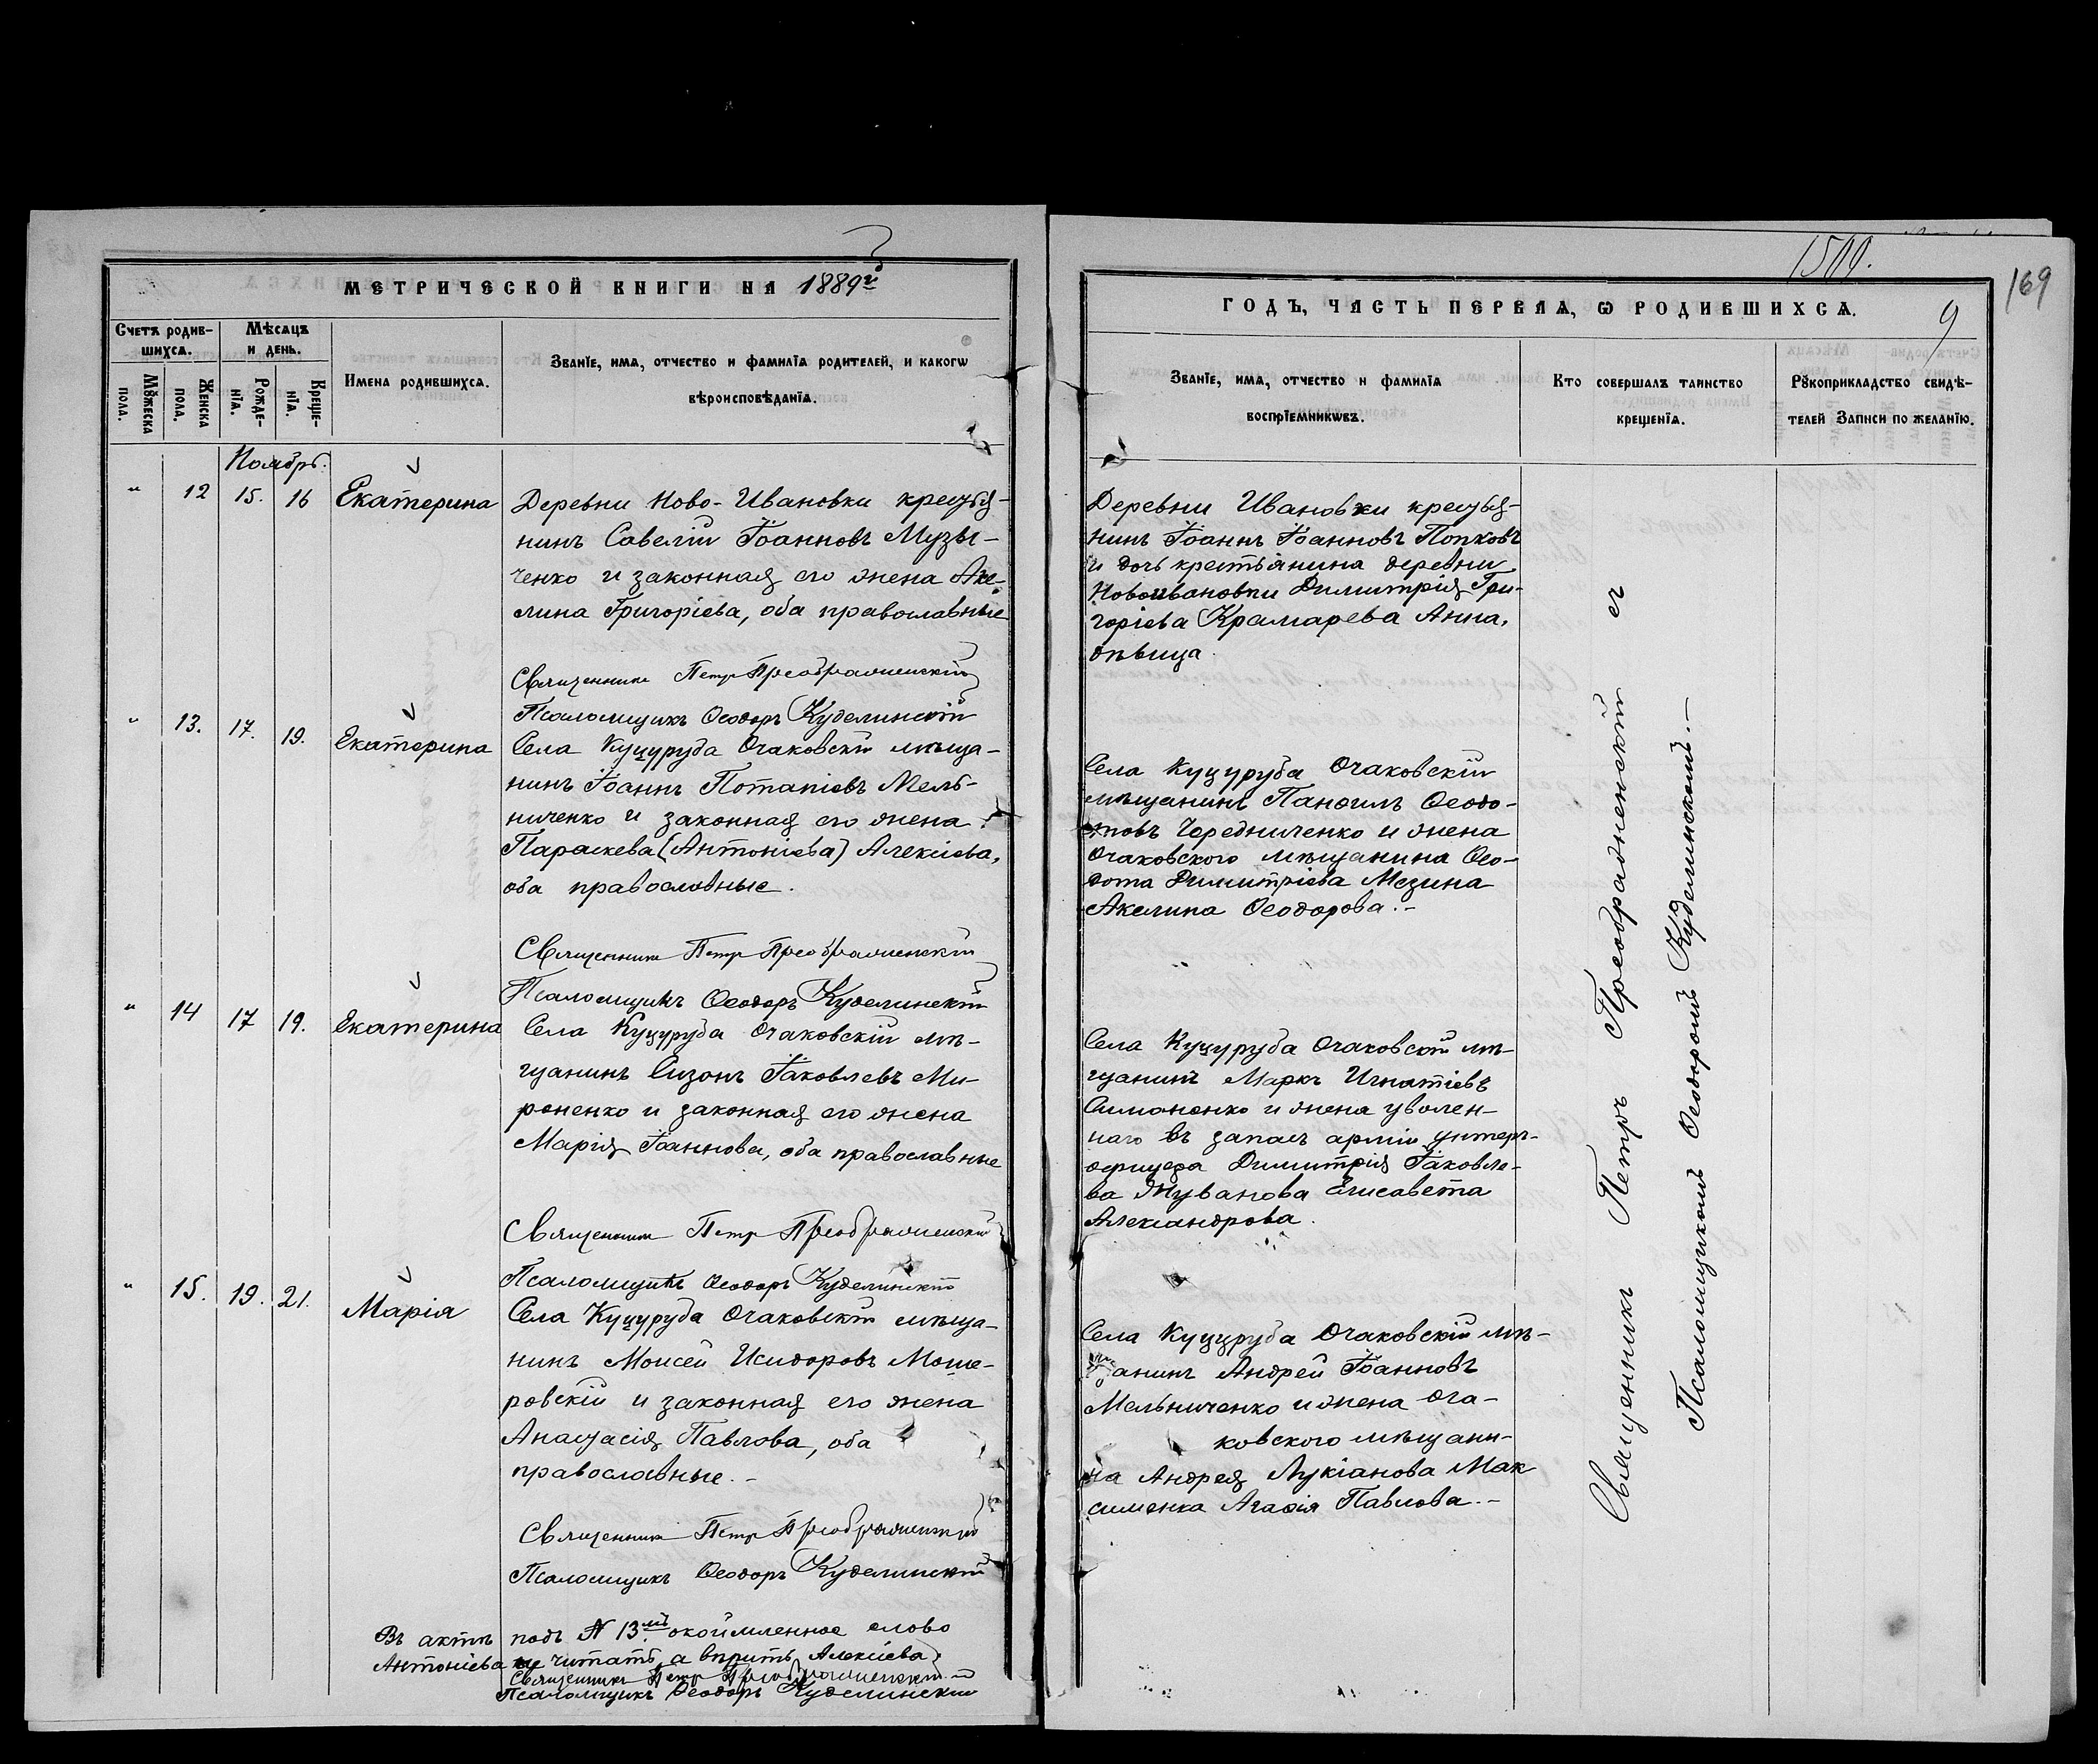 МЕТРИЧЕСКОЙ КНИГИ НА 1889 г.
Счетъ родив-
шихсѧ.
Мѣсѧцъ
и день.
Мꙋжеска
пола.
Женска
пола.
Рожде-
нїѧ.
Креще-
нїѧ.
Имена родившихсѧ.
Званїе, имѧ, отчество и фамилїѧ родителей, и какогѡ
вѣроисповѣданїѧ.
Ноябрь.
" 12 15. 16 Екатерина
Деревни Ново-Ивановки крестья-
нинъ Савелій Іоанновъ Музы-
ченко и законная его жена Аке-
лина Григоріева, оба православные
Священникъ Петръ Преображенскій
Псаломщикъ Ѳеодоръ Куделинскій
" 13. 17. 19. Екатерина
Села Куцуруба Очаковскій мѣща-
нинъ Іоаннъ Потапіевъ Мель-
ниченко и законная его жена
Параскева (Антоніева) Алексіева,
оба православные.
Священникъ Петръ Преображенскій
Псаломщикъ Ѳеодоръ Куделинскій
" 14 17 19. Екатерина
Села Куцуруба Очаковскій мѣ-
щанинъ Сизонъ Іаковлевъ Ми-
роненко и законная его жена
Марія Іоаннова, оба православные
Священникъ Петръ Преображенскій
Псаломщикъ Ѳеодоръ Куделинскій
" 15. 19. 21. Марія
Села Куцуруба Очаковскій мѣща-
нинъ Моисей Исидоровъ Моше-
ровскій и законная его жена
Анастасія Павлова, оба
православные.-
Священникъ Петръ Преображенскій
Псаломщикъ Ѳеодоръ Куделинскій
Въ актѣ подъ № 13мъ окоймленное слово
Антоніева не читать, а вѣрить Алексіева.
Священникъ Петръ Преображенскій
Псаломщикъ Ѳеодоръ Куделинскій
169
9
ГОДЪ, ЧАСТЬ ПЕРВАѦ, Ѡ РОДИВШИХСѦ.
Званїе, имѧ, отчество и фамилїѧ
воспрїемникѡвъ.
Кто совершалъ таинство
крещенїѧ.
Рꙋкоприкладство свидѣ-
телей Записи по желанїю.
Деревни Ивановки крестья-
нинъ Іоаннъ Іоанновъ Попковъ
и дочь крестьянина деревни
Новоивановки Димитрія Гри-
горіева Крамарева Анна,
дѣвица.
Села Куцуруба Очаковскій
мѣщанинъ Панфилъ Ѳеодо-
товъ Чередниченко и жена
Очаковского мѣщанина Ѳео-
дота Димитріева Мезина
Акелина Ѳеодорова.-
Села Куцуруба Очаковскій мѣ-
щанинъ Маркъ Игнатіевъ
Симоненко и жена уволен-
наго въ запасъ арміи унтеръ-
офицера Димитрія Іаковле-
ва Жуванова Елисавета
Александрова.
Села Куцуруба Очаковскій мѣ-
щанинъ Андрей Іоанновъ
Мельниченко и жена Оча-
ковского мѣщани-
на Андрея Лукіанова Мак
сименка Агафія Павлова.-
Священникъ Петръ Преображенскій съ
Псаломщикомъ Ѳеодоромъ Куделинскимъ.-